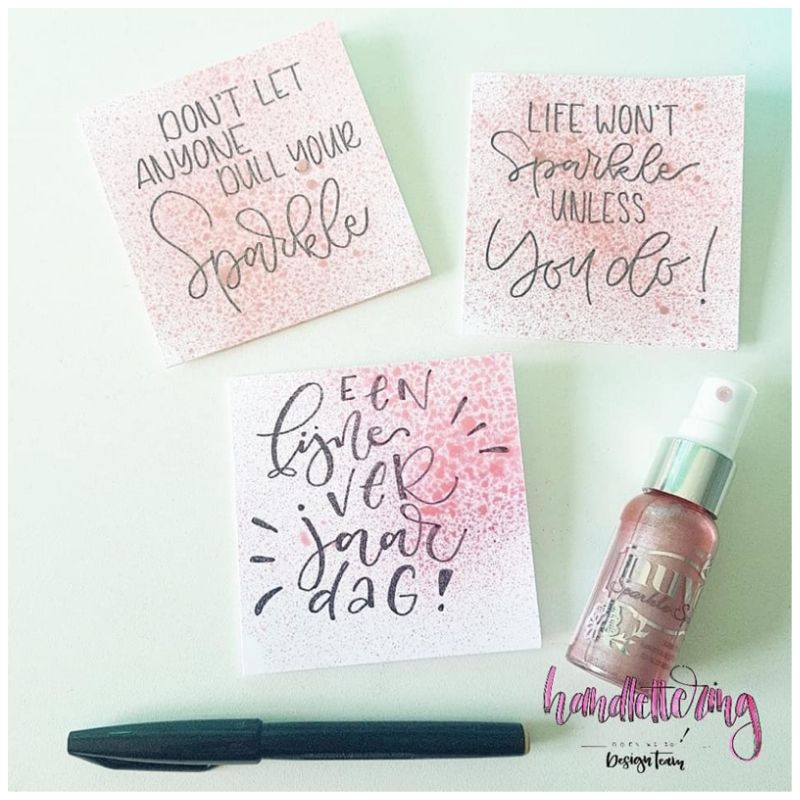 DON'T LET
ANYONE
DULL YOUR
Sparkle
LIFE WON'T
Sparkle
UNLESS
You do!
EEN
fijne
VER
jaar
DAG!
nuvo
Sparkle
handlettering
Design team